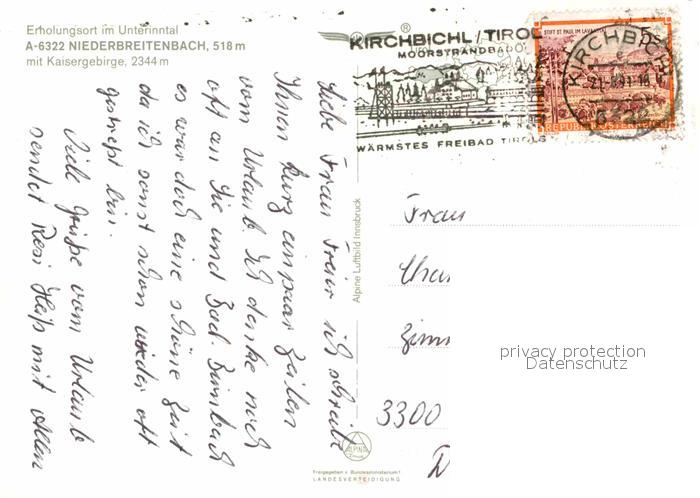 Erholungsort im Unterinntal
A-6322 NIEDERBREITENBACH, 518 m
mit Kaisergebirge, 2344 m
Liebe Frau Freier ich schreibe
Ihnen kurz ein paar Zeilen
vom Urlaub. Ich denke noch
oft an Sie und Bad
es war doch eine schöne Zeit
da ich sonst schon wieder oft
gestreßt bin.
Viele Grüße vom Urlaub
sendet Resi mit allen
Alpine Luftbild Innsbruck
KIRCHBICHL/TIROL
MOORSTRANDBAD
WÄRMSTES FREIBAD TIROLS
STIFT ST. PAUL IM LAVANTTAL
REPUBLIK ÖSTERREICH
KIRCHBICHL
6322
Frau
3300
D
privacy protection
Datenschutz
ALPINE
Freigegeben v. Bundesministerium f.
LANDESVERTEIDIGUNG